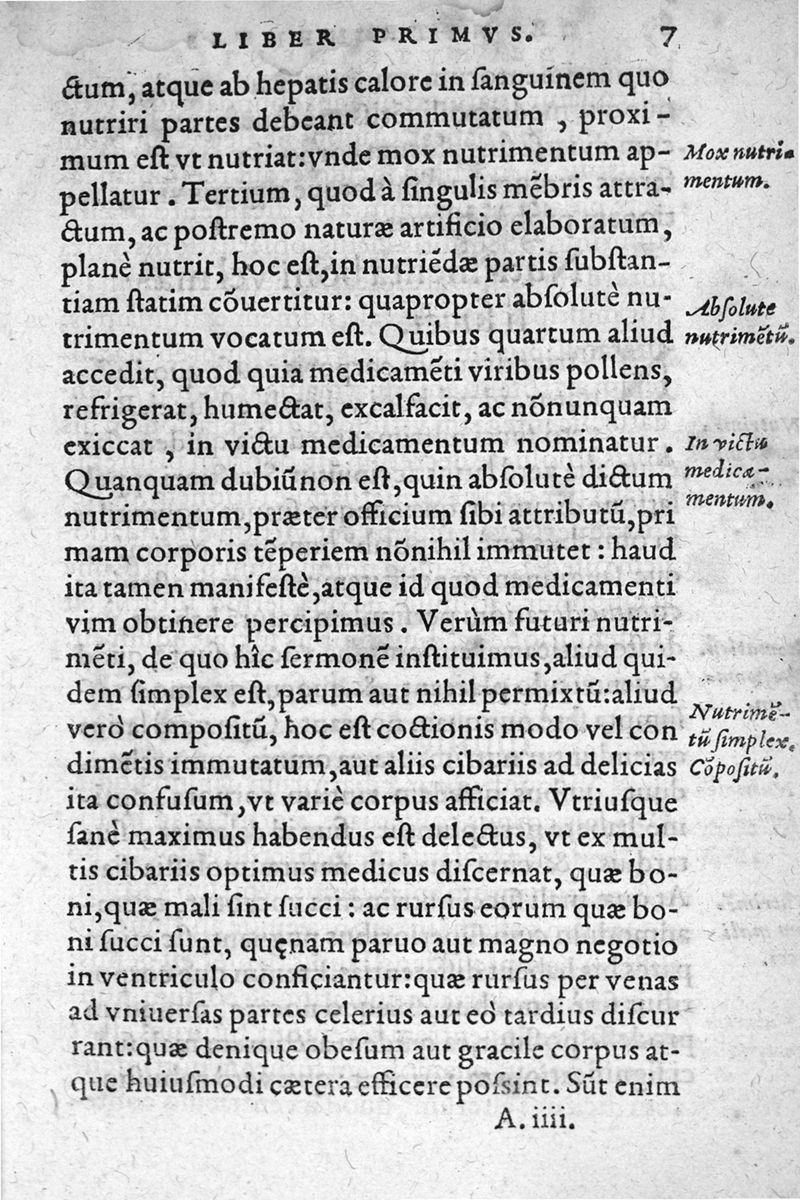 LIBER PRIMVS. 7
ctum, atque ab hepatis calore in ſanguinem quo
nutriri partes debeant commutatum , proxi-
mum eſt vt nutriat:vnde mox nutrimentum ap-
pellatur . Tertium, quod à ſingulis mẽbris attra-
ctum, ac poſtremo naturæ artificio elaboratum,
planè nutrit, hoc eſt,in nutriẽdæ partis ſubſtan-
tiam ſtatim cõuertitur: quapropter abſolutè nu-
trimentum vocatum eſt. Quibus quartum aliud
accedit, quod quia medicamẽti viribus pollens,
refrigerat, humectat, excalfacit, ac nõnunquam
exiccat , in victu medicamentum nominatur .
Quanquam dubiũ non eſt,quin abſolutè dictum
nutrimentum,præter officium ſibi attributũ,pri
mam corporis tẽperiem nõnihil immutet : haud
ita tamen manifeſtè,atque id quod medicamenti
vim obtinere percipimus . Verùm futuri nutri-
mẽti, de quo hîc ſermonẽ inſtituimus,aliud qui-
dem ſimplex eſt,parum aut nihil permixtũ:aliud
verò compoſitũ, hoc eſt coctionis modo vel con
dimẽtis immutatum,aut aliis cibariis ad delicias
ita confuſum,vt variè corpus afficiat. Vtriuſque
ſanè maximus habendus eſt delectus, vt ex mul-
tis cibariis optimus medicus diſcernat, quæ bo-
ni,quæ mali ſint ſucci : ac rurſus eorum quæ bo-
ni ſucci ſunt, quęnam paruo aut magno negotio
in ventriculo conficiantur:quæ rurſus per venas
ad vniuerſas partes celerius aut eò tardius diſcur
rant:quæ denique obeſum aut gracile corpus at-
que huiuſmodi cætera efficere poſsint. Sũt enim
A. iiii.
Mox nutri-
mentum.
Abſolute
nutrimẽtũ.
In victu
medica-
mentum.
Nutrimẽ-
tũ ſimplex.
Cõpoſitũ.